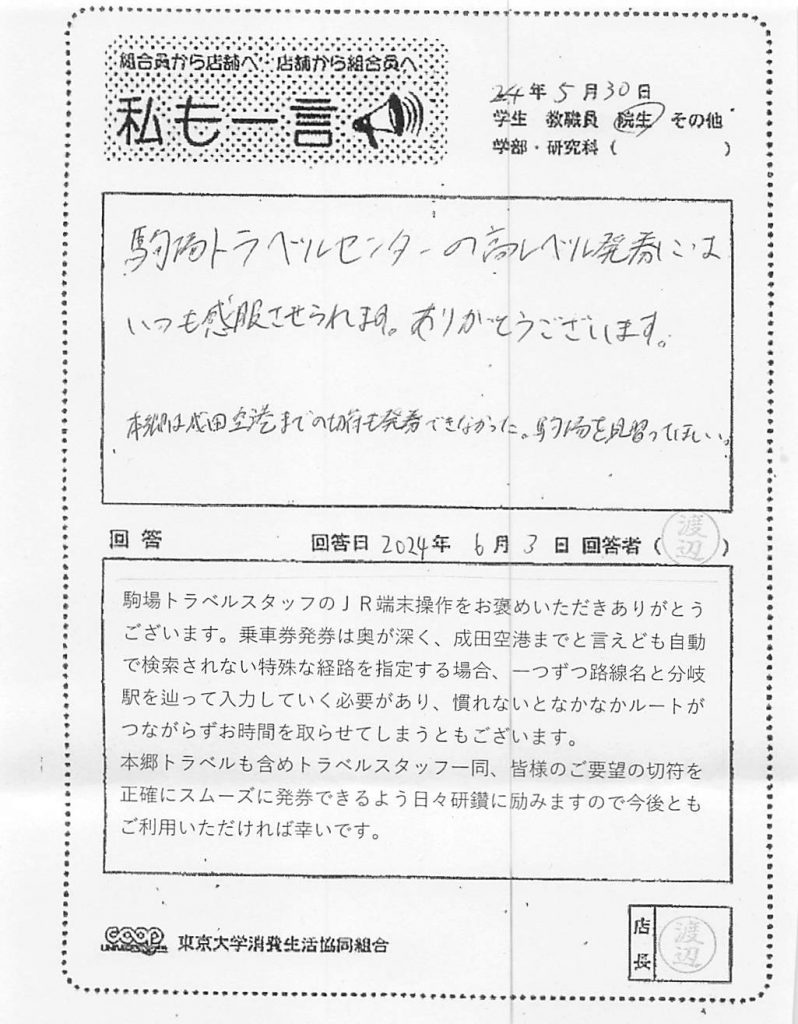 組合員から店舗へ 店舗から組合員へ
私も一言
24年5月30日
学生 教職員 院生 その他
学部・研究科( )
駒場トラベルセンターの高レベル発券には
いつも感服させられます。ありがとうございます。
本郷は成田空港までの切符も発券できなかった。駒場を見習ってほしい。
回答 回答日 2024年 6月 3日 回答者(渡辺)
駒場トラベルスタッフのJR端末操作をお褒めいただきありがとう
ございます。乗車券発券は奥が深く、成田空港までと言えども自動
で検索されない特殊な経路を指定する場合、一つずつ路線名と分岐
駅を辿って入力していく必要があり、慣れないとなかなかルートが
つながらずお時間を取らせてしまうともございます。
本郷トラベルも含めトラベルスタッフ一同、皆様のご要望の切符を
正確にスムーズに発券できるよう日々研鑽に励みますので今後とも
ご利用いただければ幸いです。
coop 東京大学消費生活協同組合
店長 渡辺